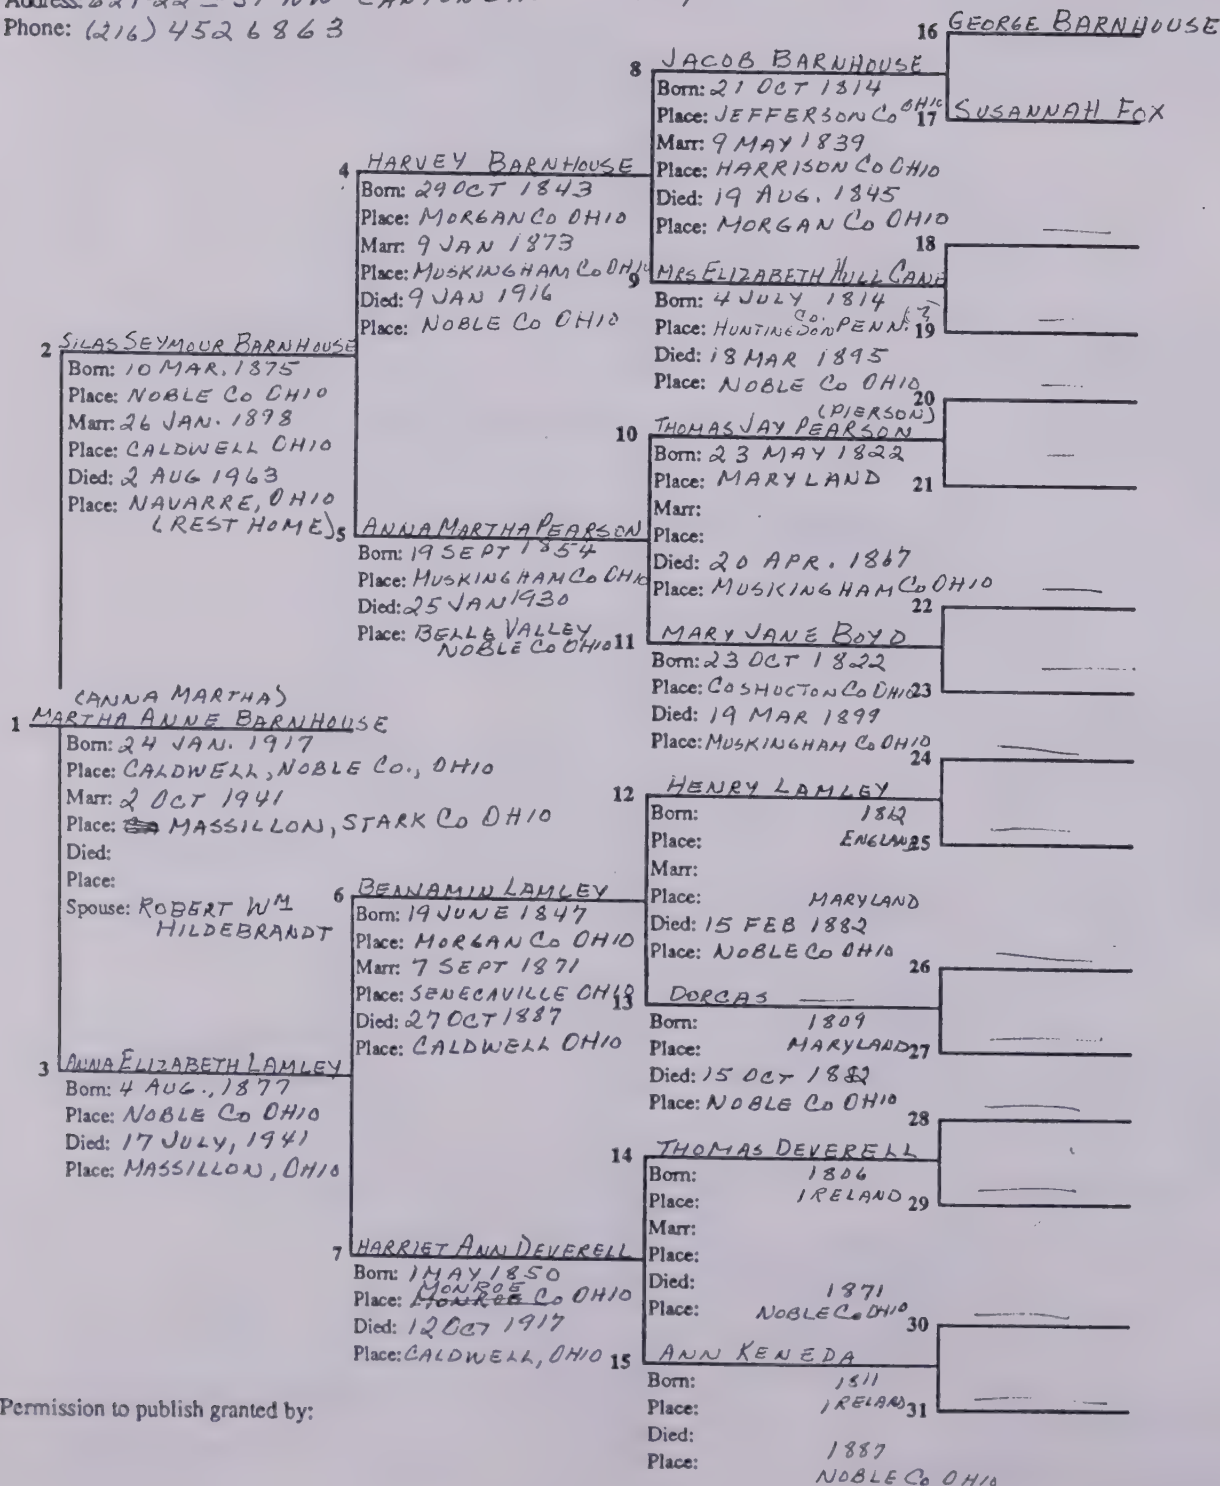 Phone: (216) 452 6863
1 (ANNA MARTHA)
MARTHA ANNE BARNHOUSE
Born: 24 JAN. 1917
Place: CALDWELL, NOBLE CO., OHIO
Marr: 2 OCT 1941
Place: MASSILLON, STARK CO OHIO
Died:
Place:
Spouse: ROBERT WM
HILDEBRANDT
2 SILAS SEYMOUR BARNHOUSE
Born: 10 MAR. 1875
Place: NOBLE CO OHIO
Marr: 26 JAN. 1898
Place: CALDWELL OHIO
Died: 2 AUG 1963
Place: NAVARRE, OHIO
(REST HOME)
3 ANNA ELIZABETH LAMLEY
Born: 4 AUG., 1877
Place: NOBLE CO OHIO
Died: 17 JULY, 1941
Place: MASSILLON, OHIO
4 HARVEY BARNHOUSE
Born: 29 OCT 1843
Place: MORGAN CO OHIO
Marr: 9 JAN 1873
Place: MUSKINGHAM CO OHIO
Died: 9 JAN 1916
Place: NOBLE CO OHIO
5 ANNA MARTHA PEARSON
Born: 19 SEPT 1854
Place: MUSKINGHAM CO OHIO
Died: 25 JAN 1930
Place: BELLE VALLEY
NOBLE CO OHIO
6 BENJAMIN LAMLEY
Born: 19 JUNE 1847
Place: MORGAN CO OHIO
Marr: 7 SEPT 1871
Place: SENECAVILLE OHIO
Died: 27 OCT 1887
Place: CALDWELL OHIO
7 HARRIET ANN DEVERELL
Born: 1 MAY 1850
MONROE
Place: MONROE CO OHIO
Died: 12 OCT 1917
Place: CALDWELL, OHIO
8 JACOB BARNHOUSE
Born: 21 OCT 1814
Place: JEFFERSON CO OHIO
Marr: 9 MAY 1839
Place: HARRISON CO OHIO
Died: 19 AUG. 1845
Place: MORGAN CO OHIO
9 MRS ELIZABETH HULL CANE
Born: 4 JULY 1814
Place: HUNTINGDON CO. PENN. (?)
Died: 18 MAR 1895
Place: NOBLE CO OHIO
(PIERSON)
10 THOMAS JAY PEARSON
Born: 23 MAY 1822
Place: MARYLAND
Marr:
Place:
Died: 20 APR. 1867
Place: MUSKINGHAM CO OHIO
11 MARY JANE BOYD
Born: 23 OCT 1822
Place: COSHOCTON CO OHIO
Died: 19 MAR 1899
Place: MUSKINGHAM CO OHIO
12 HENRY LAMLEY
Born: 1812
Place: ENGLAND
Marr:
Place: MARYLAND
Died: 15 FEB 1882
Place: NOBLE CO OHIO
13 DORCAS
Born: 1809
Place: MARYLAND
Died: 15 OCT 1882
Place: NOBLE CO OHIO
14 THOMAS DEVERELL
Born: 1806
Place: IRELAND
Marr:
Place:
Died: 1871
Place: NOBLE CO OHIO
15 ANN KENEDA
Born: 1811
Place: IRELAND
Died: 1887
Place: NOBLE CO OHIO
16 GEORGE BARNHOUSE
17 SUSANNAH FOX
18
19
20
21
22
23
24
25
26
27
28
29
30
31
Permission to publish granted by: